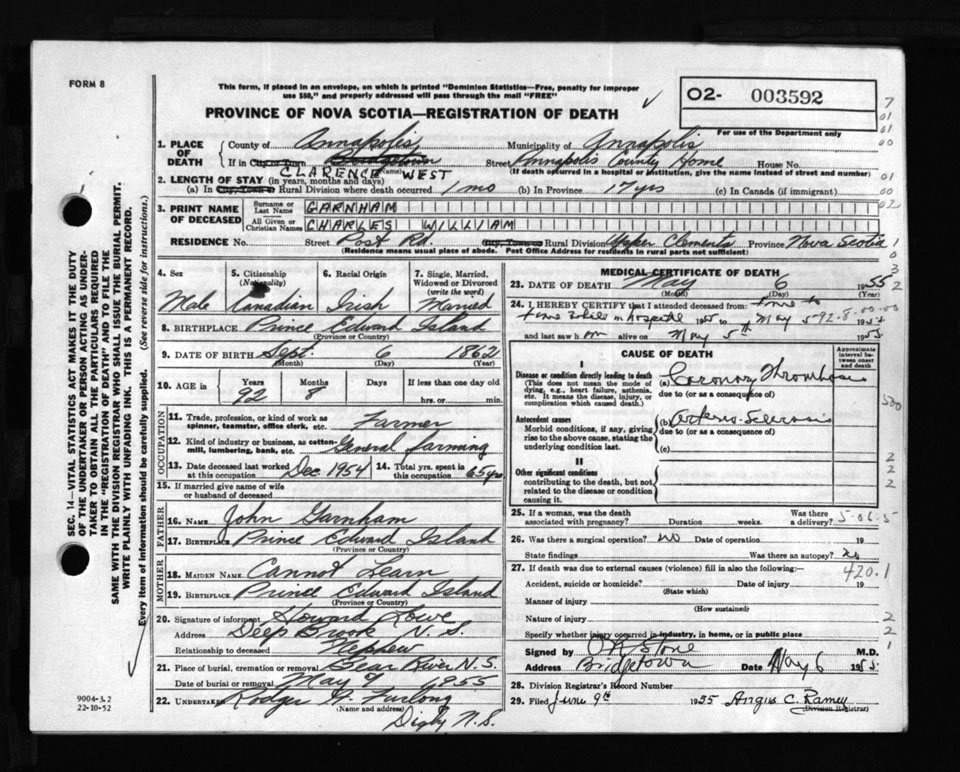 FORM 8
This form, if placed in an envelope, on which is printed "Dominion Statistics—Free, penalty for improper
use $50," and properly addressed will pass through the mail "FREE"
PROVINCE OF NOVA SCOTIA—REGISTRATION OF DEATH
02- 003592
For use of the Department only
1. PLACE OF DEATH
County of Annapolis Municipality of Annapolis
If in City or Town Bridgetown (Name) Street Annapolis County Home House No.
(If death occurred in a hospital or institution, give the name instead of street and number)
CLARENCE WEST
2. LENGTH OF STAY (in years, months and days)
(a) In City, Town or Rural Division where death occurred 1 mo (b) In Province 17 yrs (c) In Canada (if immigrant)
3. PRINT NAME OF DECEASED
Surname or Last Name GARNHAM
All Given or Christian Names CHARLES WILLIAM
RESIDENCE No. Street Post Rd. City, Town or Rural Division Upper Clements Province Nova Scotia
(Residence means usual place of abode. Post Office Address for residents in rural parts not sufficient)
4. Sex Male
5. Citizenship (Nationality) Canadian
6. Racial Origin Irish
7. Single, Married, Widowed or Divorced (write the word) Married
8. BIRTHPLACE Prince Edward Island
(Province or Country)
9. DATE OF BIRTH Sept. 6 1862
(Month) (Day) (Year)
10. AGE in Years 92 Months 8 Days If less than one day old hrs. or min.
OCCUPATION
11. Trade, profession, or kind of work as spinner, teamster, office clerk, etc. Farmer
12. Kind of industry or business, as cotton-mill, lumbering, bank, etc. General farming
13. Date deceased last worked at this occupation Dec. 1954 14. Total yrs. spent in this occupation 65 yrs
15. If married give name of wife or husband of deceased
FATHER
16. NAME John Garnham
17. BIRTHPLACE Prince Edward Island
(Province or Country)
MOTHER
18. MAIDEN NAME Cannot Learn
19. BIRTHPLACE Prince Edward Island
(Province or Country)
20. Signature of informant Howard Lowe
Address Deep Brook N.S.
Relationship to deceased Nephew
21. Place of burial, cremation or removal Bear River N.S.
Date of burial or removal May 9 1955
22. UNDERTAKER Rodger H. Furlong
(Name and address)
Digby N.S.
MEDICAL CERTIFICATE OF DEATH
23. DATE OF DEATH May 6 1955
(Month) (Day) (Year)
24. I HEREBY CERTIFY that I attended deceased from: time to
time while in hospital 1955 to May 5 1955
92.8.00.00
and last saw h im alive on May 5th 1955
CAUSE OF DEATH
Approximate interval between onset and death
I
Disease or condition directly leading to death
(This does not mean the mode of dying, e.g., heart failure, asthenia, etc. It means the disease, injury, or complication which caused death.)
(a) Coronary Thrombosis
due to (or as a consequence of)
Antecedent causes
Morbid conditions, if any, giving rise to the above cause, stating the underlying condition last.
(b) Arterio-Sclerosis
due to (or as a consequence of)
(c)
II
Other significant conditions
contributing to the death, but not related to the disease or condition causing it.
25. If a woman, was the death associated with pregnancy? Duration weeks. Was there a delivery?
5-06-5
26. Was there a surgical operation? no Date of operation 19
State findings Was there an autopsy? no
27. If death was due to external causes (violence) fill in also the following:—
420.1
Accident, suicide or homicide? Date of injury 19
(State which)
Manner of injury
(How sustained)
Nature of injury
Specify whether injury occurred in industry, in home, or in public place
Signed by Stone M.D.
Address Bridgetown Date May 6 1955
28. Division Registrar's Record Number
29. Filed June 9th 1955 Angus C. Ramey
(Division Registrar)
SEC. 14—VITAL STATISTICS ACT MAKES IT THE DUTY
OF THE UNDERTAKER OR PERSON ACTING AS UNDER-
TAKER TO OBTAIN ALL THE PARTICULARS REQUIRED
IN THE "REGISTRATION OF DEATH" AND TO FILE THE
SAME WITH THE DIVISION REGISTRAR WHO SHALL ISSUE THE BURIAL PERMIT.
WRITE PLAINLY WITH UNFADING INK. THIS IS A PERMANENT RECORD.
Every item of information should be carefully supplied. (See reverse side for instructions.)
9004-3.2
22-10-52